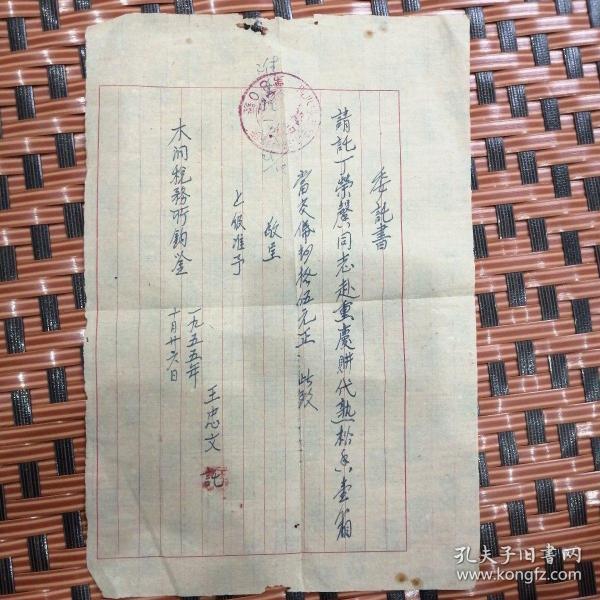 委託書
請託丁榮馨同志赴重慶購代熟松香壹箱
當交傌拾伍元正 此致
敬呈
上級准予
木洞稅務所鈞鉴
一九五五年
十月廿六日
王忠文 託
孔夫子旧书网
www.kongfz.com